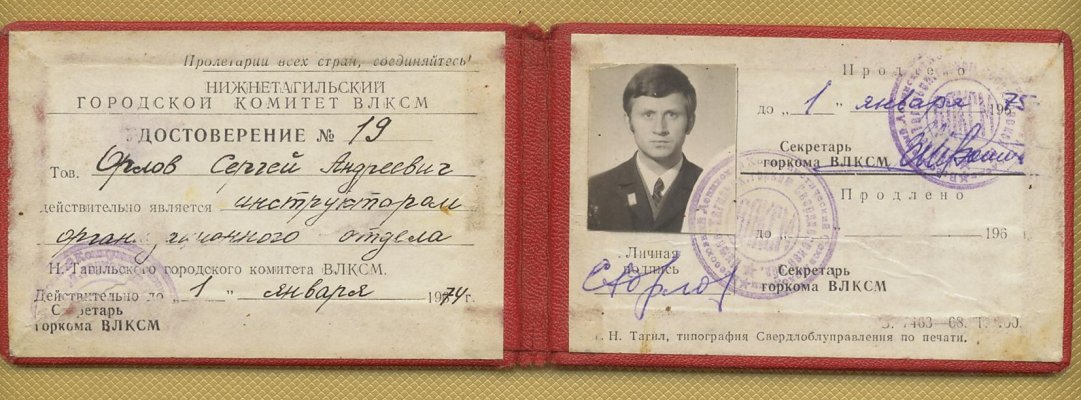 Пролетарии всех стран, соединяйтесь!
НИЖНЕТАГИЛЬСКИЙ
ГОРОДСКОЙ КОМИТЕТ ВЛКСМ
УДОСТОВЕРЕНИЕ № 19
Тов. Орлов Сергей Андреевич
действительно является инструктором
организационного отдела
Н.-Тагильского городского комитета ВЛКСМ.
Действительно до „1" января 1974 г.
Секретарь
горкома ВЛКСМ
Продлено
до „1" января 19675
Секретарь
горкома ВЛКСМ
Продлено
до „ " 196 г.
Личная
подпись
САОрлов
Секретарь
горкома ВЛКСМ
З. 7463—68.
Н. Тагил, типография Свердлоблуправления по печати.